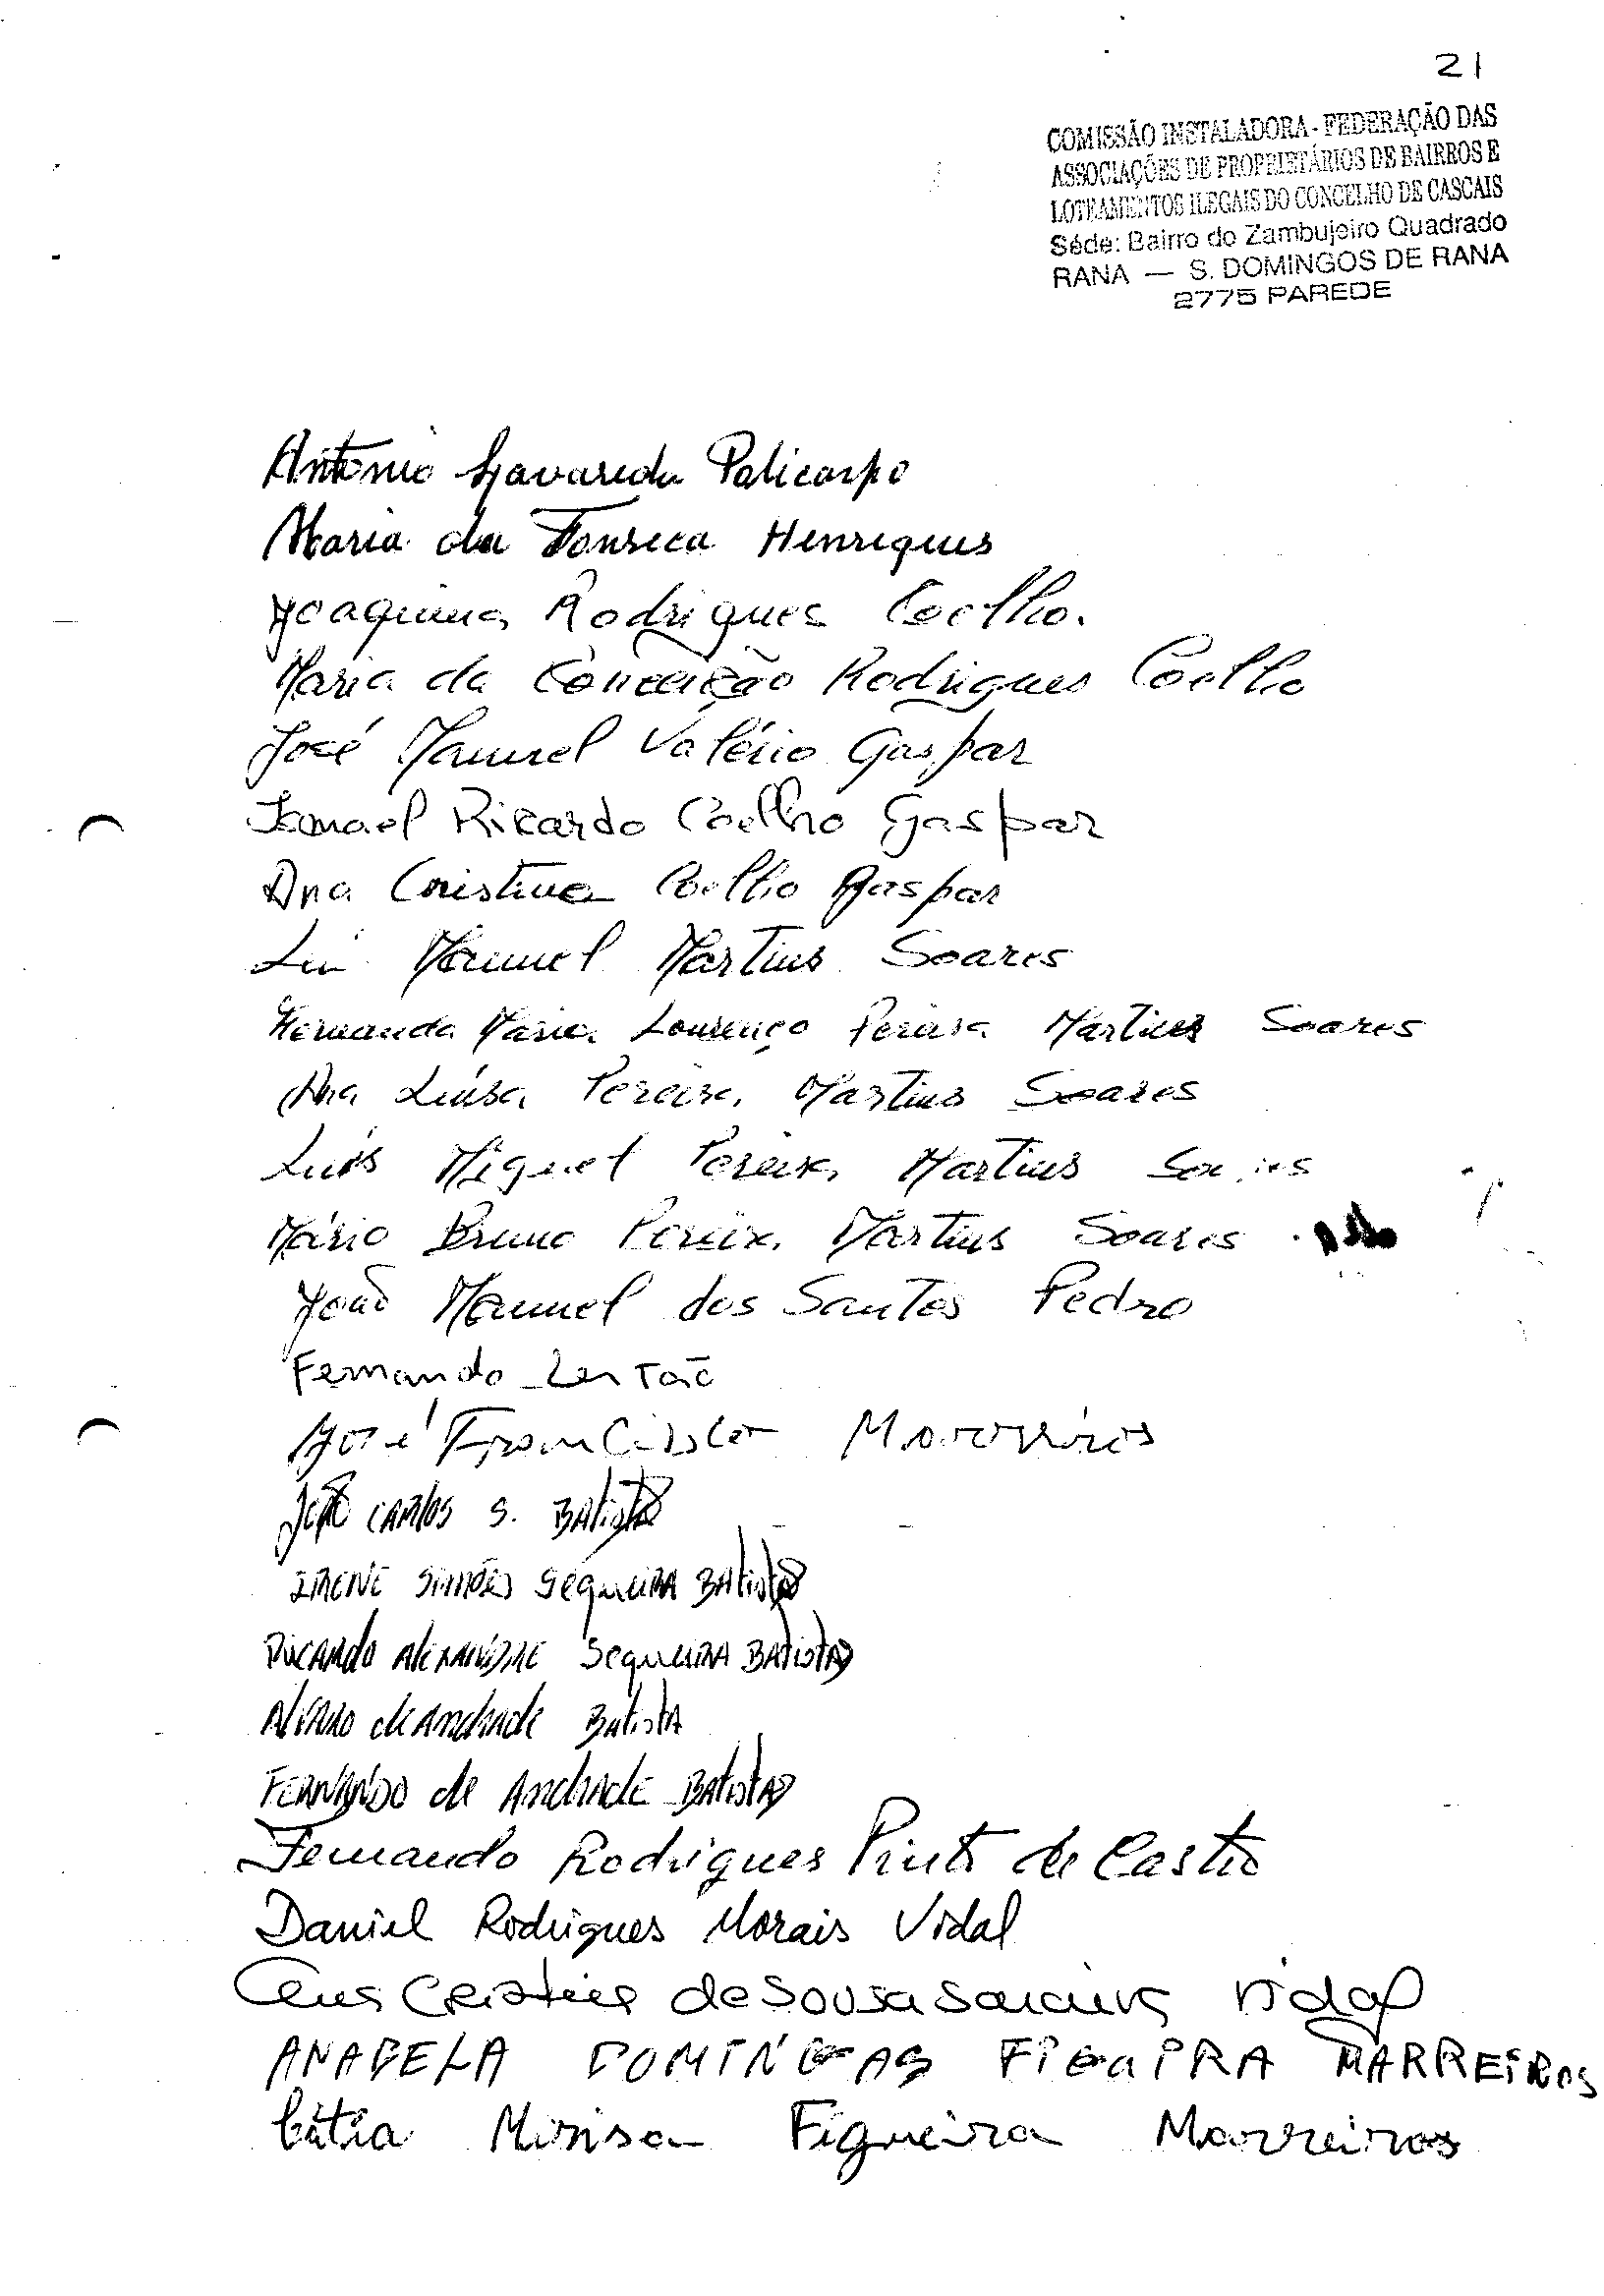 21
COMISSÃO INSTALADORA - FEDERAÇÃO DAS
ASSOCIAÇÕES DE PROPRIETÁRIOS DE BAIRROS E
LOTEAMENTOS ILEGAIS DO CONCELHO DE CASCAIS
Séde: Bairro do Zambujeiro Quadrado
RANA — S. DOMINGOS DE RANA
2775 PAREDE
António Policarpo
Maria da Fonseca Henriques
Joaquina Rodrigues Coelho.
Maria da Conceição Rodrigues Coelho
José Manuel Valério Gaspar
Ismael Ricardo Coelho Gaspar
Ana Cristina Coelho Gaspar
Manuel Martins Soares
Fernanda Maria Lourenço Pereira Martins Soares
Ana Luísa Pereira Martins Soares
Luís Miguel Pereira Martins
Mário Bruno Pereira Martins Soares
João Manuel dos Santos Pedro
Fernando Leitão
José Francisco Marreiros
João CARlos S. BAtistA
IRENE SIMÕES SEQUEIRA BAtistA
RICARdo AlEXANDRE SEQUEIRA BAtistA
AlVARO de AndRAde BAtistA
FERNANDO de AndRAdE BAtistA
Fernando Rodrigues Pinto de Castro
Daniel Rodrigues Morais Vidal
Cristina de Sousa Vidal
ANABELA DOMINGAS FIGUEIRA MARREIROS
Cátia Figueira Marreiros